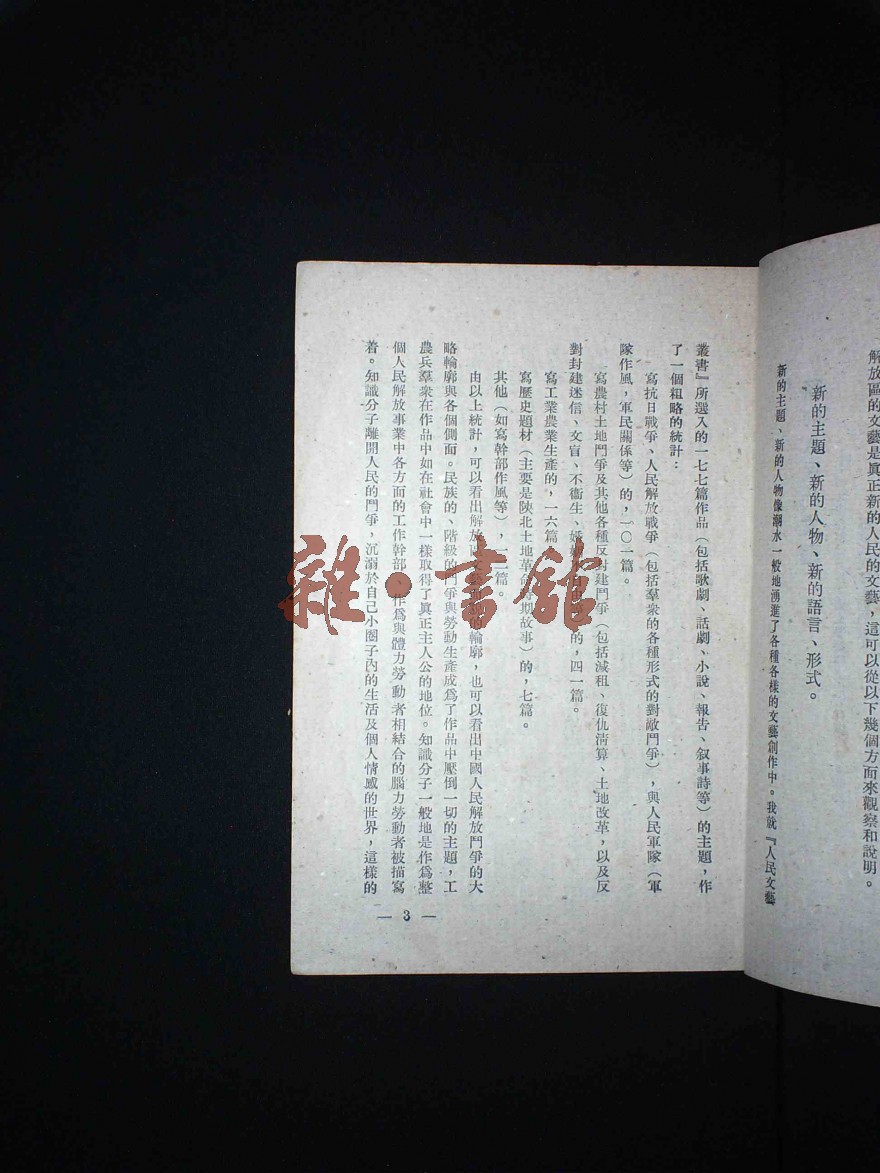 解放區的文藝是眞正新的人民的文藝，這可以從以下幾個方面來觀察和說明。
新的主題、新的人物、新的語言、形式。
新的主題、新的人物像潮水一般地湧進了各種各樣的文藝創作中。我就『人民文藝
叢書』所選入的一七七篇作品（包括歌劇、話劇、小說、報告、叙事詩等）的主題，作
了一個粗略的統計：
寫抗日戰爭、人民解放戰爭（包括羣衆的各種形式的對敵鬥爭），與人民軍隊（軍
隊作風，軍民關係等）的，一〇一篇。
寫農村土地鬥爭及其他各種反封建鬥爭（包括減租、復仇清算、土地改革，以及反
對封建迷信、文盲、不衞生、婚姻不自由等）的，四一篇。
寫工業農業生產的，一六篇。
寫歷史題材（主要是陝北土地革命時期故事）的，七篇。
其他（如寫幹部作風等），一二篇。
由以上統計，可以看出解放區文藝的輪廓，也可以看出中國人民解放鬥爭的大
略輪廓與各個側面。民族的、階級的鬥爭與勞動生產成爲了作品中壓倒一切的主題，工
農兵羣衆在作品中如在社會中一樣取得了眞正主人公的地位。知識分子一般地是作爲整
個人民解放事業中各方面的工作幹部、作爲與體力勞動者相結合的腦力勞動者被描寫
着。知識分子離開人民的鬥爭，沉溺於自己小圈子內的生活及個人情感的世界，這樣的
— 3 —
雜·書館